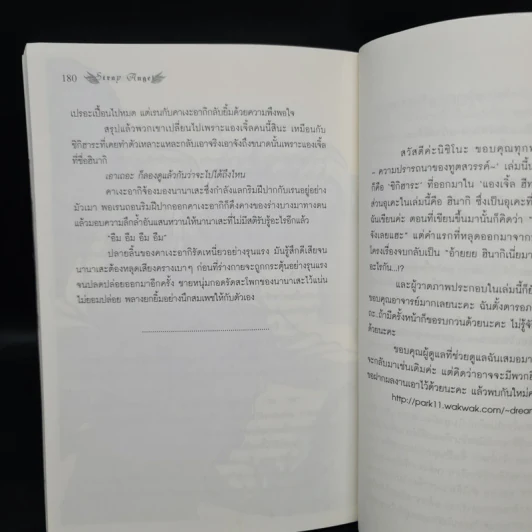 180 Scrap Angel
เปรอะเปื้อนไปหมด แต่เรนกับคาเงะอากิกลับยิ้มด้วยความพึงพอใจ
สรุปแล้วพวกเขาเปลี่ยนไปเพราะแองเจิ้ลคนนี้สินะ เหมือนกับ
ชิกิฮาระที่เคยทำตัวเหลาะแหละกลับเอาจริงเอาจังถึงขนาดนั้นเพราะแองเจิ้ล
ที่ชื่อฮินากิ
เอาเถอะ ก็ลองดูแล้วกันว่าจะไปได้ถึงไหน
คาเงะอากิจ้องมองนานาเสะซึ่งกำลังแลกริมฝีปากกับเรนอยู่อย่าง
มัวเมา พอเรนถอนริมฝีปากออกคาเงะอากิก็ดึงคางของร่างบางมาทางตน
แล้วมอบความลึกล้ำอันแสนหวานให้นานาเสะที่ไม่มีสติรับรู้อะไรอีกแล้ว
"อืม อืม อืม อืม"
ปลายลิ้นของคาเงะอากิรัดเหนี่ยวอย่างรุนแรง มันรู้สึกดีเสียจน
นานาเสะต้องหลุดเสียงครางเบาๆ ก่อนที่ร่างกายจะถูกกระตุ้นอย่างรุนแรง
จนปลดปล่อยออกมาอีกครั้ง ชายหนุ่มกอดรัดสะโพกของนานาเสะไว้แน่น
ไม่ยอมปล่อย พลางยกยิ้มอย่างนึกสมเพชให้กับตัวเอง
สวัสดีค่ะนิชิโนะ ขอบคุณทุกท
- ความปรารถนาของทูตสวรรค์-' เล่มนี้น
ก็คือ 'ชิกิฮาระ' ที่ออกมาใน 'แองเจิ้ล ฮีท
ส่วนอุเคะในเล่มนี้คือ ฮินากิ ซึ่งเป็นอุเคะที่
ฉันเขียนค่ะ ตอนที่เขียนขึ้นมานั้นก็คิดว่า
จังเลยแฮะ" แต่คำแรกที่หลุดออกมาจาก
โครงเรื่องจบกลับเป็น "อ้ายยย ฮินากิเนี่ยมา
อะไรกัน..!?
และผู้วาดภาพประกอบในเล่มนี้ก็ยั
ขอบคุณอาจารย์มากเลยนะคะ ฉันตั้งตารอภ
ถะ..ถ้ามีครั้งหน้าก็ขอรบกวนด้วยนะคะ ไม่รู้จั
ด้วยนะคะ
ขอบคุณผู้ดูแลที่ช่วยดูแลฉันเสมอมา
จะกลับมาเช่นเดิมค่ะ แต่คิดว่าอาจจะมีพวกอี
ขอฝากผลงานเอาไว้ด้วยนะคะ แล้วพบกันใหม่ค
http://park11.wakwak.com/~drean